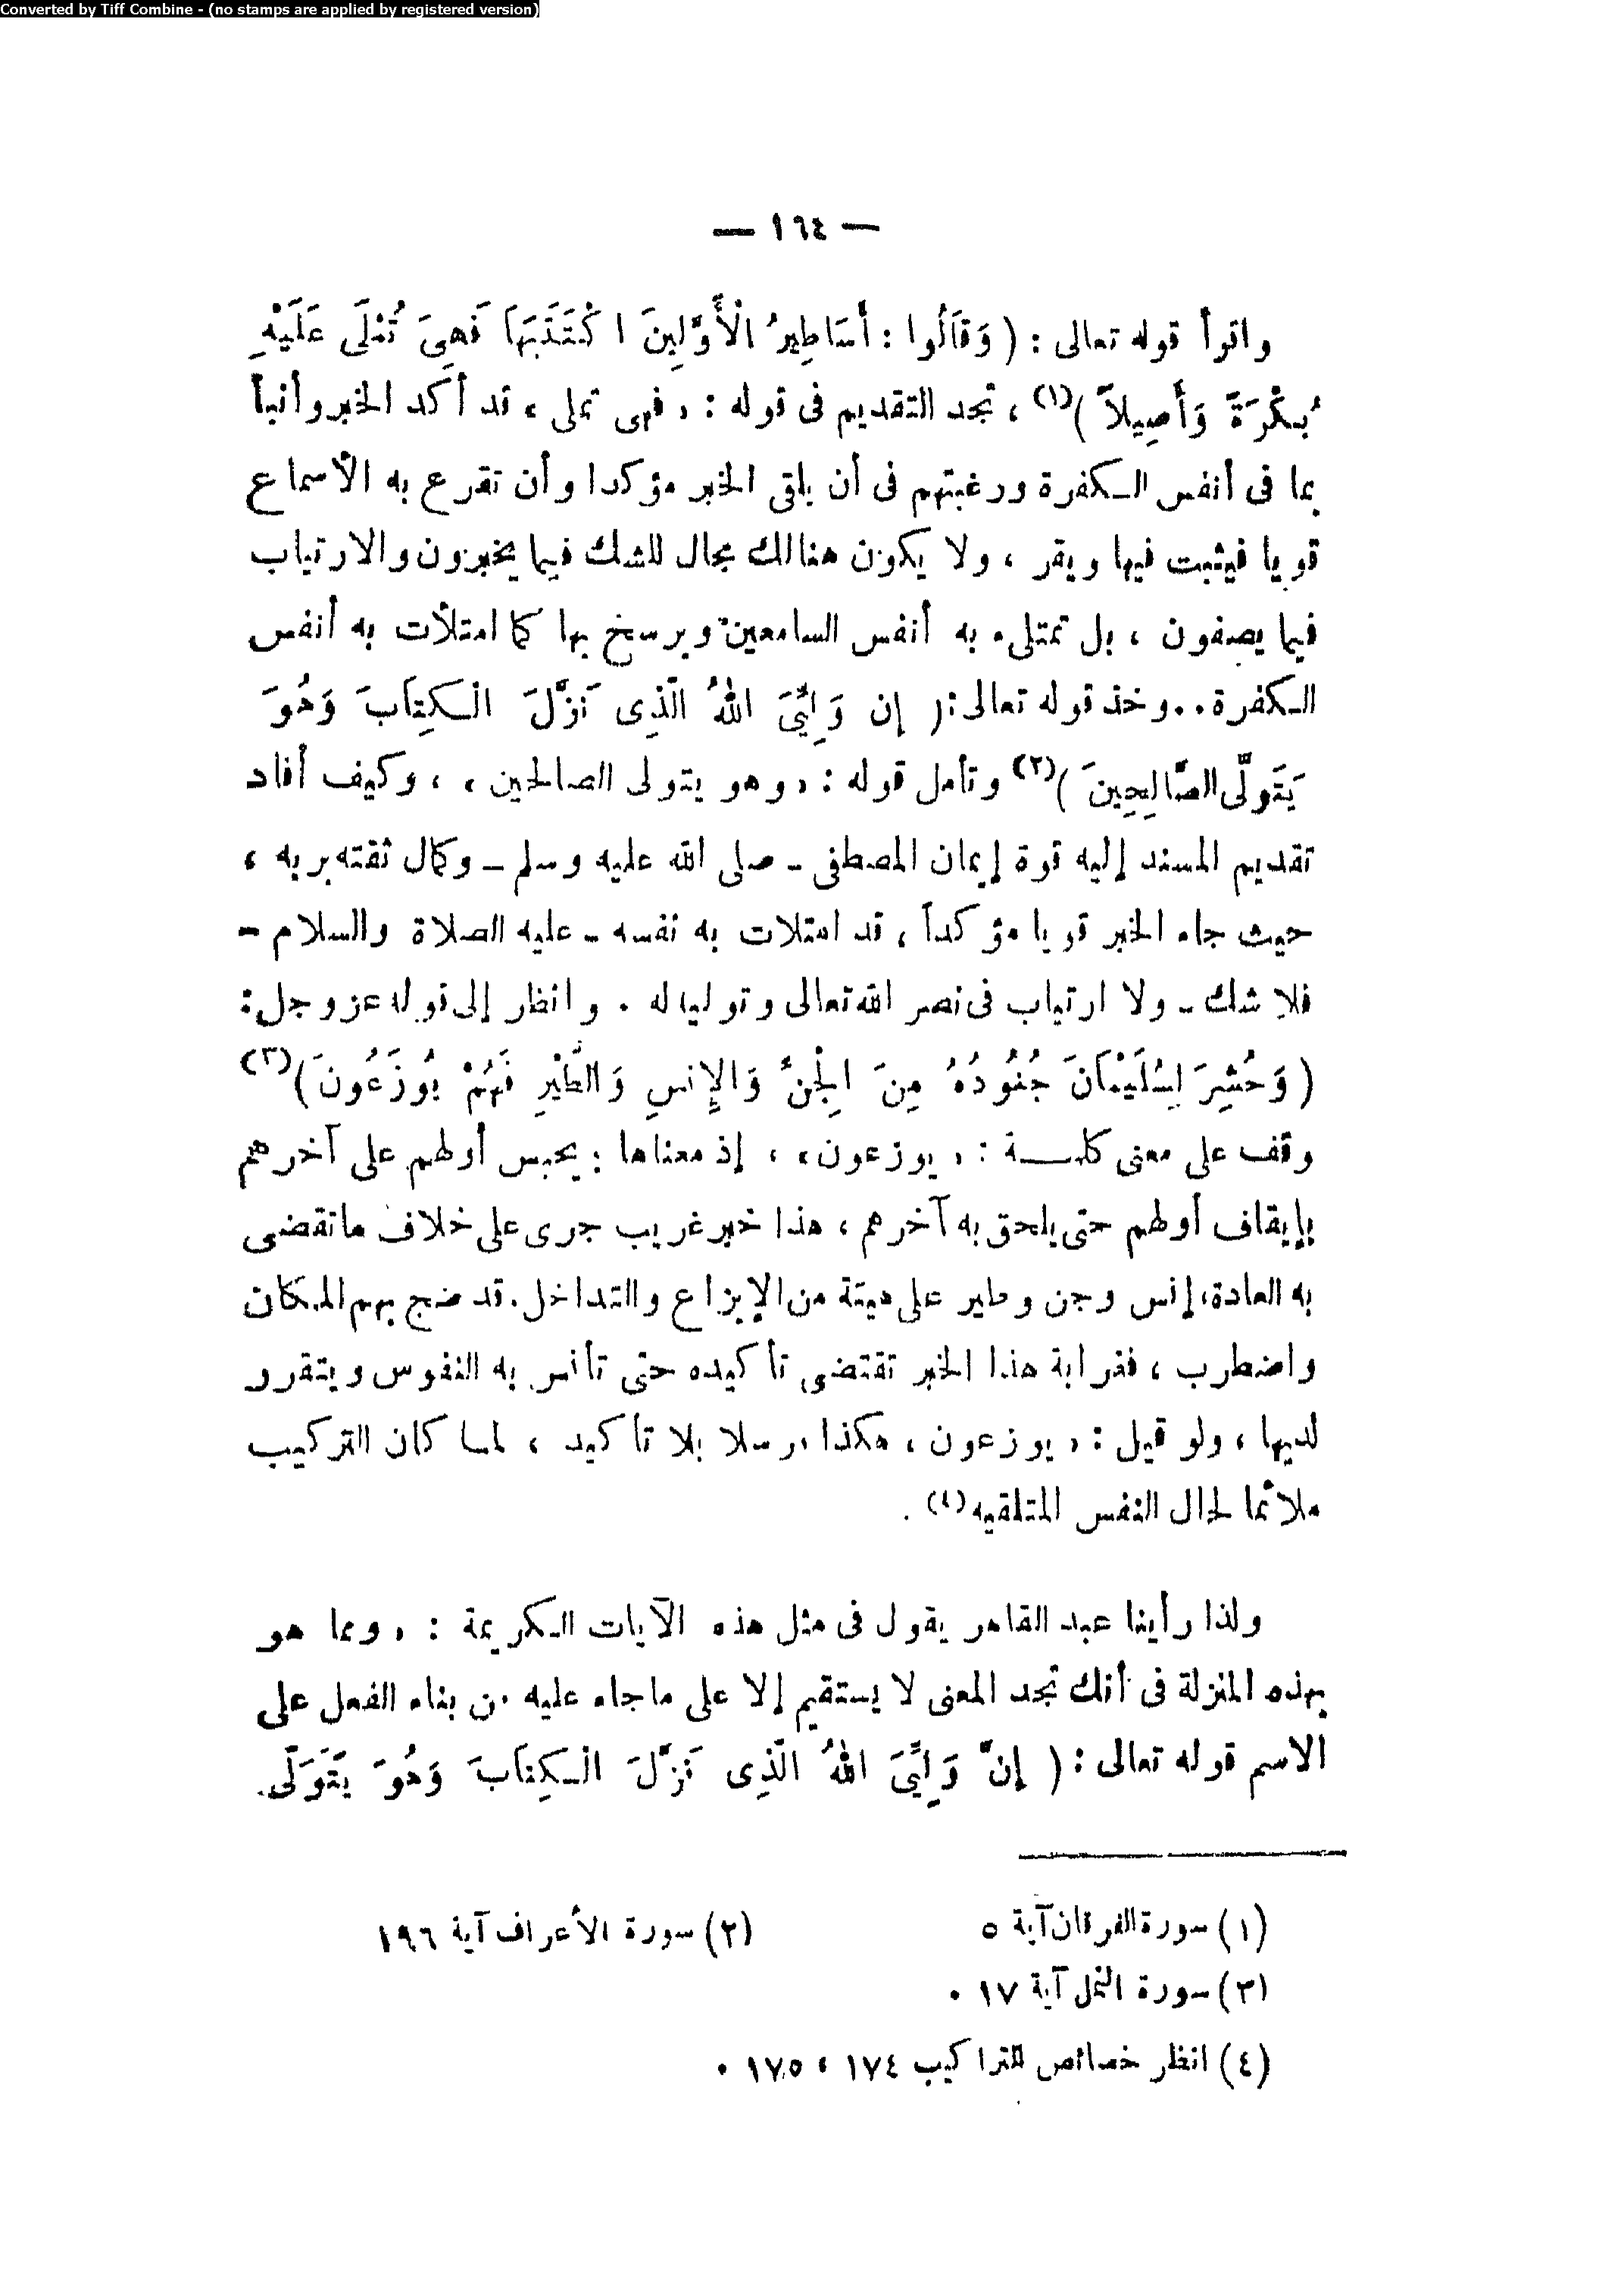 Converted by Tiff Combine - (no stamps are applied by registered version)
— ١٦٤ —
واقرأ قوله تعالى : ( وَقَالُوا : أَسَاطِيرُ الْأَوَّلِينَ اكْتَتَبَهَا فَهِيَ تُمْلَى عَلَيْهِ
بُكْرَةً وَأَصِيلاً )(١) ، تجد التقديم فى قوله : « فهى تملى » قد أكد الخبر وأنبأ
بما فى أنفس الكفرة ورغبتهم فى أن يلقى الخبر مؤكدا وأن تقرع به الأسماع
قويا فيثبت فيها ويقر ، ولا يكون هنالك مجال للشك فيما يخبرون والارتياب
فيما يصفون ، بل تمتلىء به أنفس السامعين ويرسخ بها كما امتلأت به أنفس
الكفرة . . وخذ قوله تعالى : ( إن وَلِيِّيَ اللهُ الَّذِى نَزَّلَ الْكِتَابَ وَهُوَ
يَتَوَلَّى الصَّالِحِينَ )(٢) وتأمل قوله : « وهو يتولى الصالحين » ، وكيف أفاد
تقديم المسند إليه قوة إيمان المصطفى - صلى الله عليه وسلم - وكمال ثقته بربه ،
حيث جاء الخبر قويا مؤكداً ، قد امتلات به نفسه - عليه الصلاة والسلام -
فلا شك - ولا ارتياب فى نصر الله تعالى وتوليه له . وانظر إلى قوله عز وجل :
( وَحُشِرَ لِسُلَيْمَانَ جُنُودُهُ مِنَ الْجِنِّ وَالإِنسِ وَالطَّيْرِ فَهُمْ يُوزَعُونَ )(٣)
وقف على معنى كلمـــة : « يوزعون » ، إذ معناها : يحبس أولهم على آخرهم
بإيقاف أولهم حتى يلحق به آخرهم ، هذا خبر غريب جرى على خلاف ما تقضى
به العادة، إنس وجن وطير على هيئة من الإيزاع والتداخل . قد ضج بهم المكان
واضطرب ، فغرابة هذا الخبر تقتضى تأكيده حتى تأنس به النفوس ويتقرر
لديها ، ولو قيل : « يوزعون » هكذا مرسلا بلا تأكيد ، لما كان التركيب
ملائما لحال النفس المتلقيه(٤) .
ولذا رأينا عبد القاهر يقول فى مثل هذه الآيات الكريمة : « ومما هو
بهذه المنزلة فى أنك تجد المعنى لا يستقيم إلا على ما جاء عليه من بناء الفعل على
الاسم قوله تعالى : ( إِنَّ وَلِيِّيَ اللهُ الَّذِى نَزَّلَ الْكِتَابَ وَهُوَ يَتَوَلَّى
(١) سورة الفرقان آية ٥
(٢) سورة الأعراف آية ١٩٦
(٣) سورة النمل آية ١٧ .
(٤) انظر خصائص التراكيب ١٧٤ ، ١٧٥ .